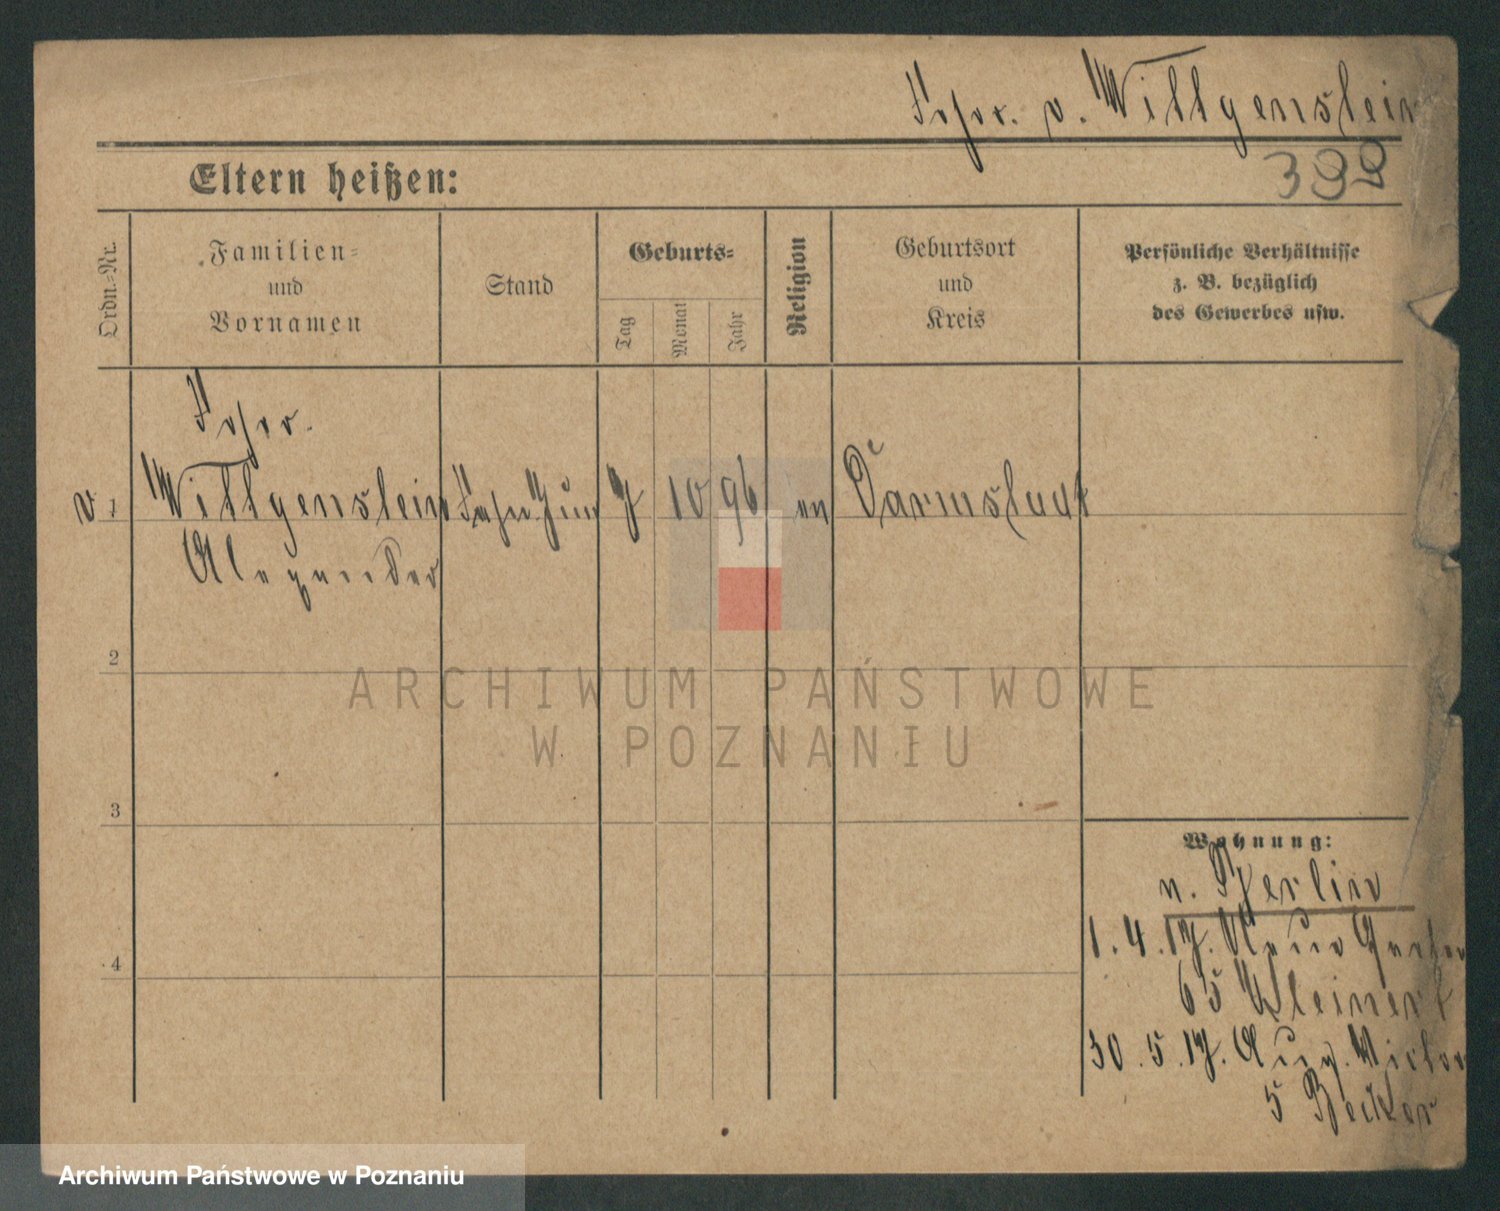 Frhr. v. Wittgenstein
Eltern heißen:
399
Ordn.=Nr.
Familien=
und
Vornamen
Stand
Geburts=
Tag
Monat
Jahr
Religion
Geburtsort
und
Kreis
Persönliche Verhältnisse
z. B. bezüglich
des Gewerbes usw.
Frhr.
v. 1 Wittgenstein Fahn. Jun 7 10 96 ev Darmstadt
Alexander
2
3
4
Wohnung:
n. Berlin
1. 4. 17. Neue Garten
65 Kleinert
30. 5. 17. Aug. Victor
5 Becker
ARCHIWUM PAŃSTWOWE
W POZNANIU
Archiwum Państwowe w Poznaniu